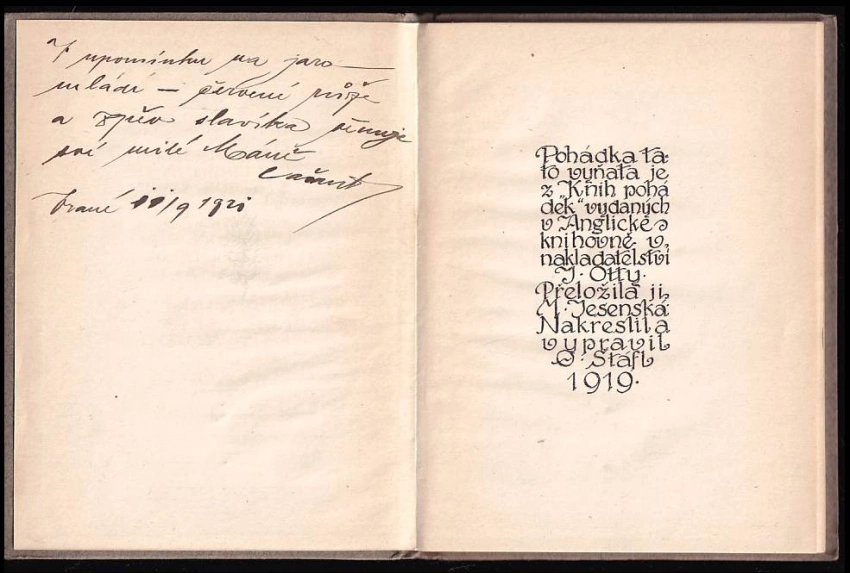 V upomínku na jaro —
mládí — červené růže
a zpěv slavíka věnuje
své milé Máně
Vrané 11/9 1921
Pohádka ta-
to vyňata je
z „Knih pohá
dek“ vydaných
v Anglické
knihovně v
nakladatelství
J. Otty.
Přeložila ji
M. Jesenská.
Nakreslil a
vypravil
O. Štáfl
1919.